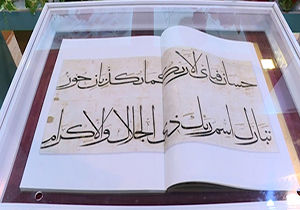 حسان فباى الاء ربكما تكذبان حور
تبارك اسم ربك ذى الجلال والاكرام